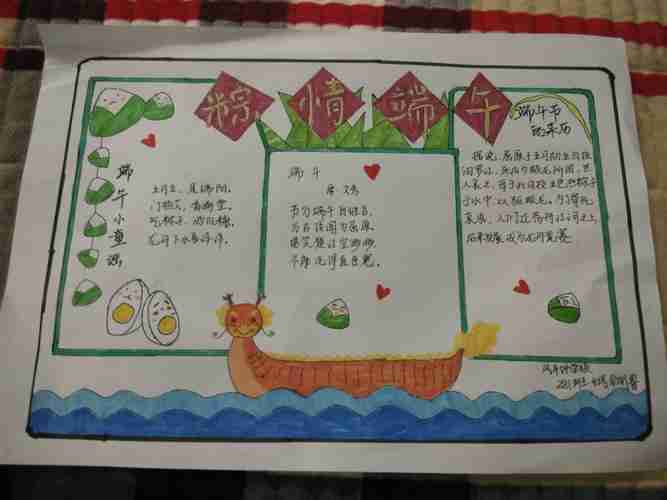 粽情端午
端午小童谣
五月五，是端阳。
门插艾，香满堂。
吃粽子，洒白糖。
龙舟下水喜洋洋。
端午
唐 文秀
节分端午自谁言，
万古传闻为屈原。
堪笑楚江空渺渺，
不能洗得直臣冤。
端午节
的来历
据说，屈原于五月初五自投
汨罗江，死后为蛟龙所困，世
人哀之，每于此日投五色丝粽子
于水中，以驱蛟龙。